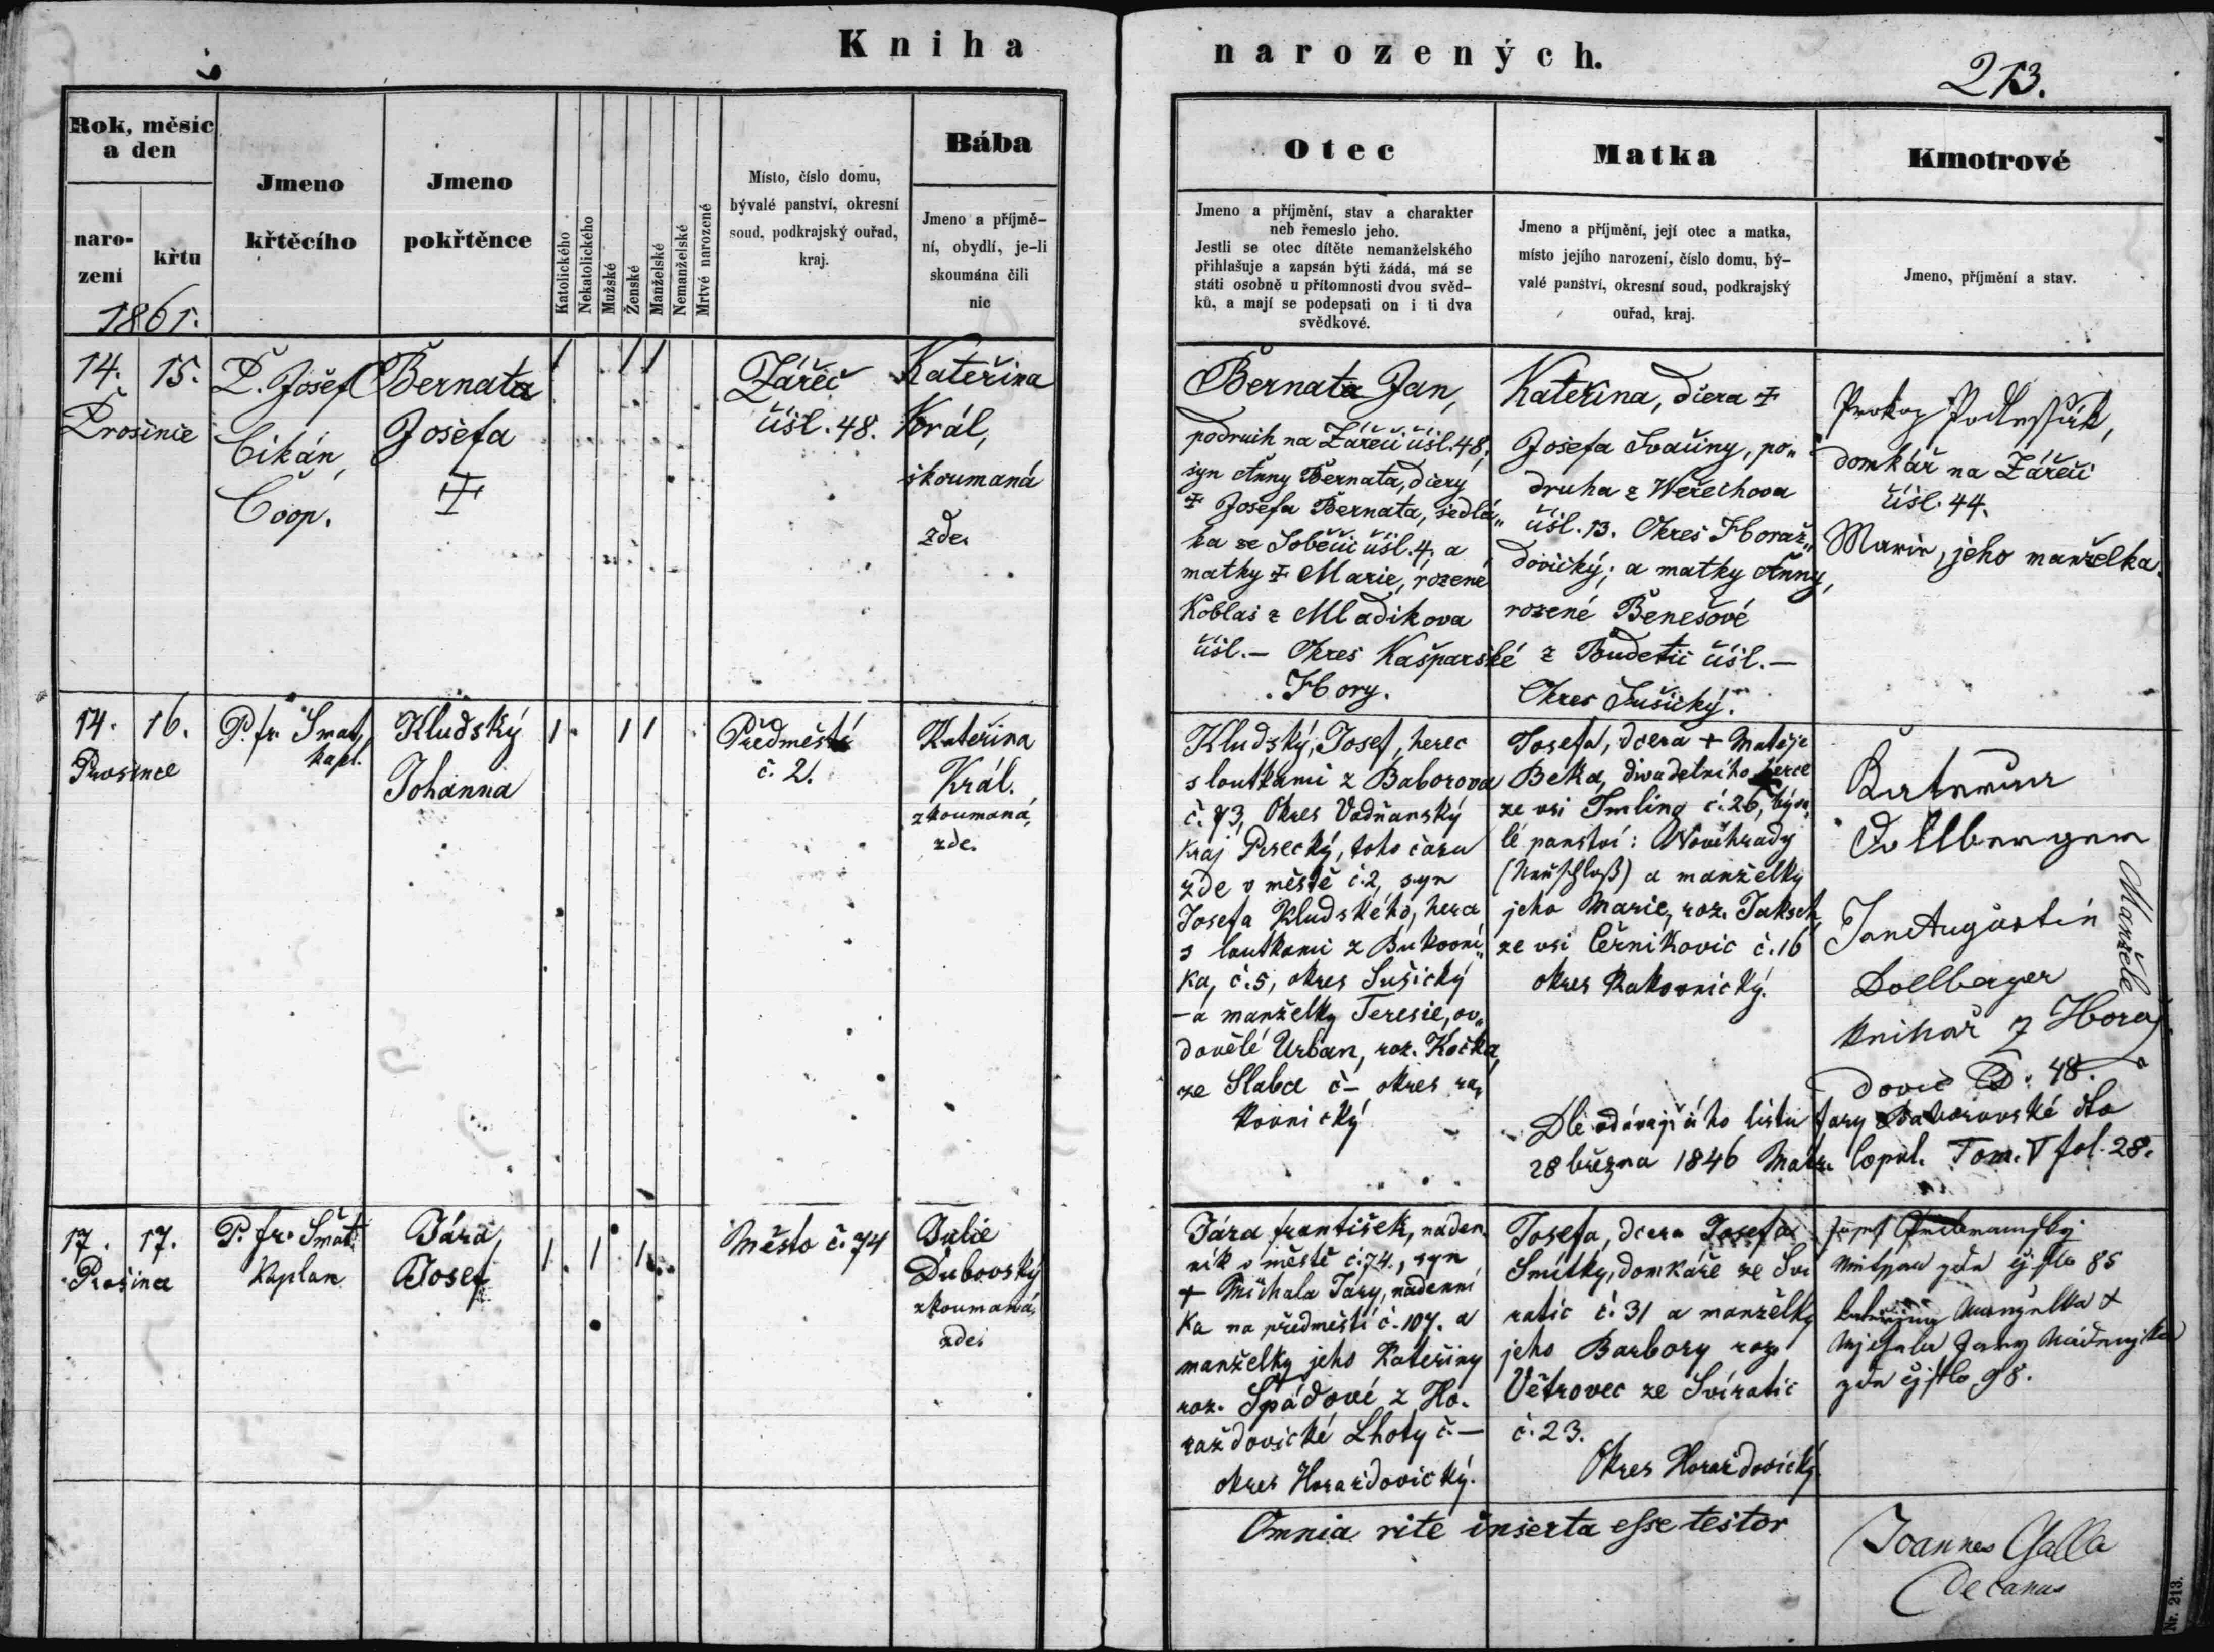 Kniha narozených.
213.
Rok, měsíc
a den
naro-
zení
křtu
1861.
Jmeno
křtěcího
Jmeno
pokřtěnce
Katolického
Nekatolického
Mužské
Ženské
Manželské
Nemanželské
Mrtvé narozené
Místo, číslo domu,
bývalé panství, okresní
soud, podkrajský ouřad,
kraj.
Bába
Jmeno a příjmě-
ní, obydlí, je-li
skoumána čili
nic
Otec
Jmeno a příjmění, stav a charakter
neb řemeslo jeho.
Jestli se otec dítěte nemanželského
přihlašuje a zapsán býti žádá, má se
státi osobně u přítomnosti dvou svěd-
ků, a mají se podepsati on i ti dva
svědkové.
Matka
Jmeno a příjmění, její otec a matka,
místo jejího narození, číslo domu, bý-
valé panství, okresní soud, podkrajský
ouřad, kraj.
Kmotrové
Jmeno, příjmění a stav.
14. 15.
Prosince
P. Josef
Cikán,
Coop.
Bernata
Josefa
Zářečí
čísl. 48.
Kateřina
Král,
skoumaná
zde.
Bernata Jan,
podruh na Zářečí čísl. 48,
syn Anny Bernata, dcery
Josefa Bernata, sedlá„
ka ze Soběšic čísl. 4, a
matky Marie, rozené
Koblas z Mladikova
čísl. — Okres Kašparské
Hory.
Kateřina, dcera
Josefa Svačiny, po„
druha z Weřechova
čísl. 13. Okres Horaž„
dovický; a matky Anny,
rozené Benešové
z Budětic čísl. —
Okres Sušický.
Prokop
domkář na Zářečí
čísl. 44.
Marie, jeho manželka.
14. 16.
Prosince
P. fr. Smat,
kapl.
Kludský
Johanna
Předměstí
č. 2.
Kateřina
Král.
zkoumaná,
zde.
Kludský, Josef, herec
s loutkami z Baborova
č. 73, Okres Vodňanský
kraj Písecký, toho času
zde v městě č. 2, syn
Josefa Kludského, herce
s loutkami z Bukovní„
ka, č. 5, okres Sušický
— a manželky Teresie, ov„
dovělé Urban, roz. Kočka,
ze Slabce č — okres ra„
kovnický
Josefa, dcera + Matěje
Beka, divadelního herce
ze vsi Imling č. 26, býva„
lé panství: Novéhrady
(Neuschloß) a manželky
jeho Marie, roz. Jaksch,
ze vsi Černikovic č. 16
okres Rakovnický.
Dollberger
Jan Augustin
Dollberger
Manželé
knihař z Horaž
dovic 48.
Dle oddávajícího listu fary Baborovské dto
28 března 1846 Matr. Copul. Tom. V fol. 28.
17. 17.
Prosince
P. fr. Smat
Kaplan
Jára,
Josef
Město č. 74
Julie
Dubovský
zkoumaná,
zde.
Jára František, náden„
ník v městě č. 74., syn
+ Michala Járy, nádenní
ka na předměstí č. 107. a
manželky jeho Kateřiny
roz. Spádové z Ho„
raždovické Lhoty č. —
okres Horaždovický.
Josefa, dcera Josefa
Smitky, domkáře ze Svi
ratic č. 31 a manželky
jeho Barbory roz.
Větrovec ze Svíratic
č. 23.
Okres Horaždovický.
85
98.
Omnia rite inserta esse testor
Joannes Galla
Decanus
Nr. 213.